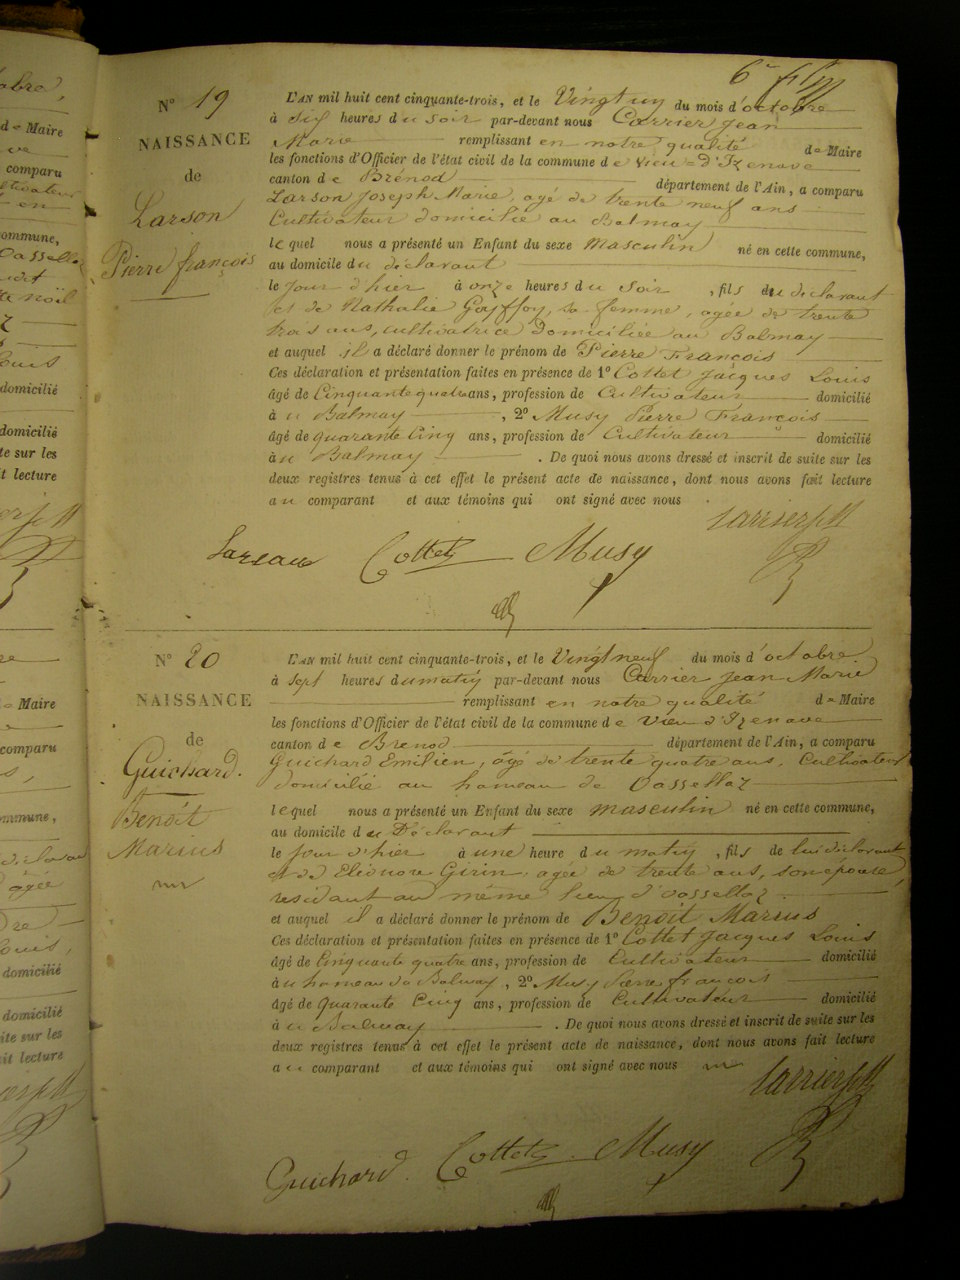 N° 19
NAISSANCE
de
Larson
Pierre françois
L'AN mil huit cent cinquante-trois, et le Vingt un du mois d'octobre
à Six heures du soir par-devant nous Carrier Jean
Marie remplissant en notre qualité de Maire
les fonctions d'Officier de l'état civil de la commune de Vieu-d'Izenave
canton de Brénod département de l'Ain, a comparu
Larson Joseph Marie, agé de trente neuf ans
Cultivateur domicilié au Balmay
lequel nous a présenté un Enfant du sexe masculin né en cette commune,
au domicile du déclarant
le jour d'hier à onze heures du soir, fils du déclarant
et de Nathalie Goyffoy, sa femme, agée de trente
trois ans, cultivatrice domiciliée au Balmay
et auquel il a déclaré donner le prénom de Pierre François
Ces déclaration et présentation faites en présence de 1° Cottet Jacques Louis
âgé de Cinquante quatre ans, profession de Cultivateur domicilié
à u Balmay, 2° Musy Pierre François
âgé de quarante Cinq ans, profession de Cultivateur domicilié
à u Balmay. De quoi nous avons dressé et inscrit de suite sur les
deux registres tenus à cet effet le présent acte de naissance, dont nous avons fait lecture
au comparant et aux témoins qui ont signé avec nous
Carrier
Cottet Musy
N° 20
NAISSANCE
de
Guichard.
Benoît
Marius
L'AN mil huit cent cinquante-trois, et le Vingt neuf du mois d'octobre
à Sept heures du matin par-devant nous Carrier Jean Marie
remplissant en notre qualité de Maire
les fonctions d'Officier de l'état civil de la commune de Vieu d'Izenave
canton de Brenod département de l'Ain, a comparu
Guichard Emilien, âgé de trente quatre ans, Cultivateur
domicilié au hameau de Oassellaz
lequel nous a présenté un Enfant du sexe masculin né en cette commune,
au domicile du Déclarant
le jour d'hier à une heure du matin, fils de lui déclarant
et de Eléonore Girin, agée de trente ans, son épouse,
residant au même lieu d'oassellaz
et auquel il a déclaré donner le prénom de Benoît Marius
Ces déclaration et présentation faites en présence de 1° Cottet Jacques Louis
âgé de Cinquante quatre ans, profession de Cultivateur domicilié
à u hameau du Balmay, 2° Musy Pierre françois
âgé de Quarante Cinq ans, profession de Cultivateur domicilié
à u Balmay. De quoi nous avons dressé et inscrit de suite sur les
deux registres tenus à cet effet le présent acte de naissance, dont nous avons fait lecture
au comparant et aux témoins qui ont signé avec nous
Carrier
Guichard. Cottet Musy